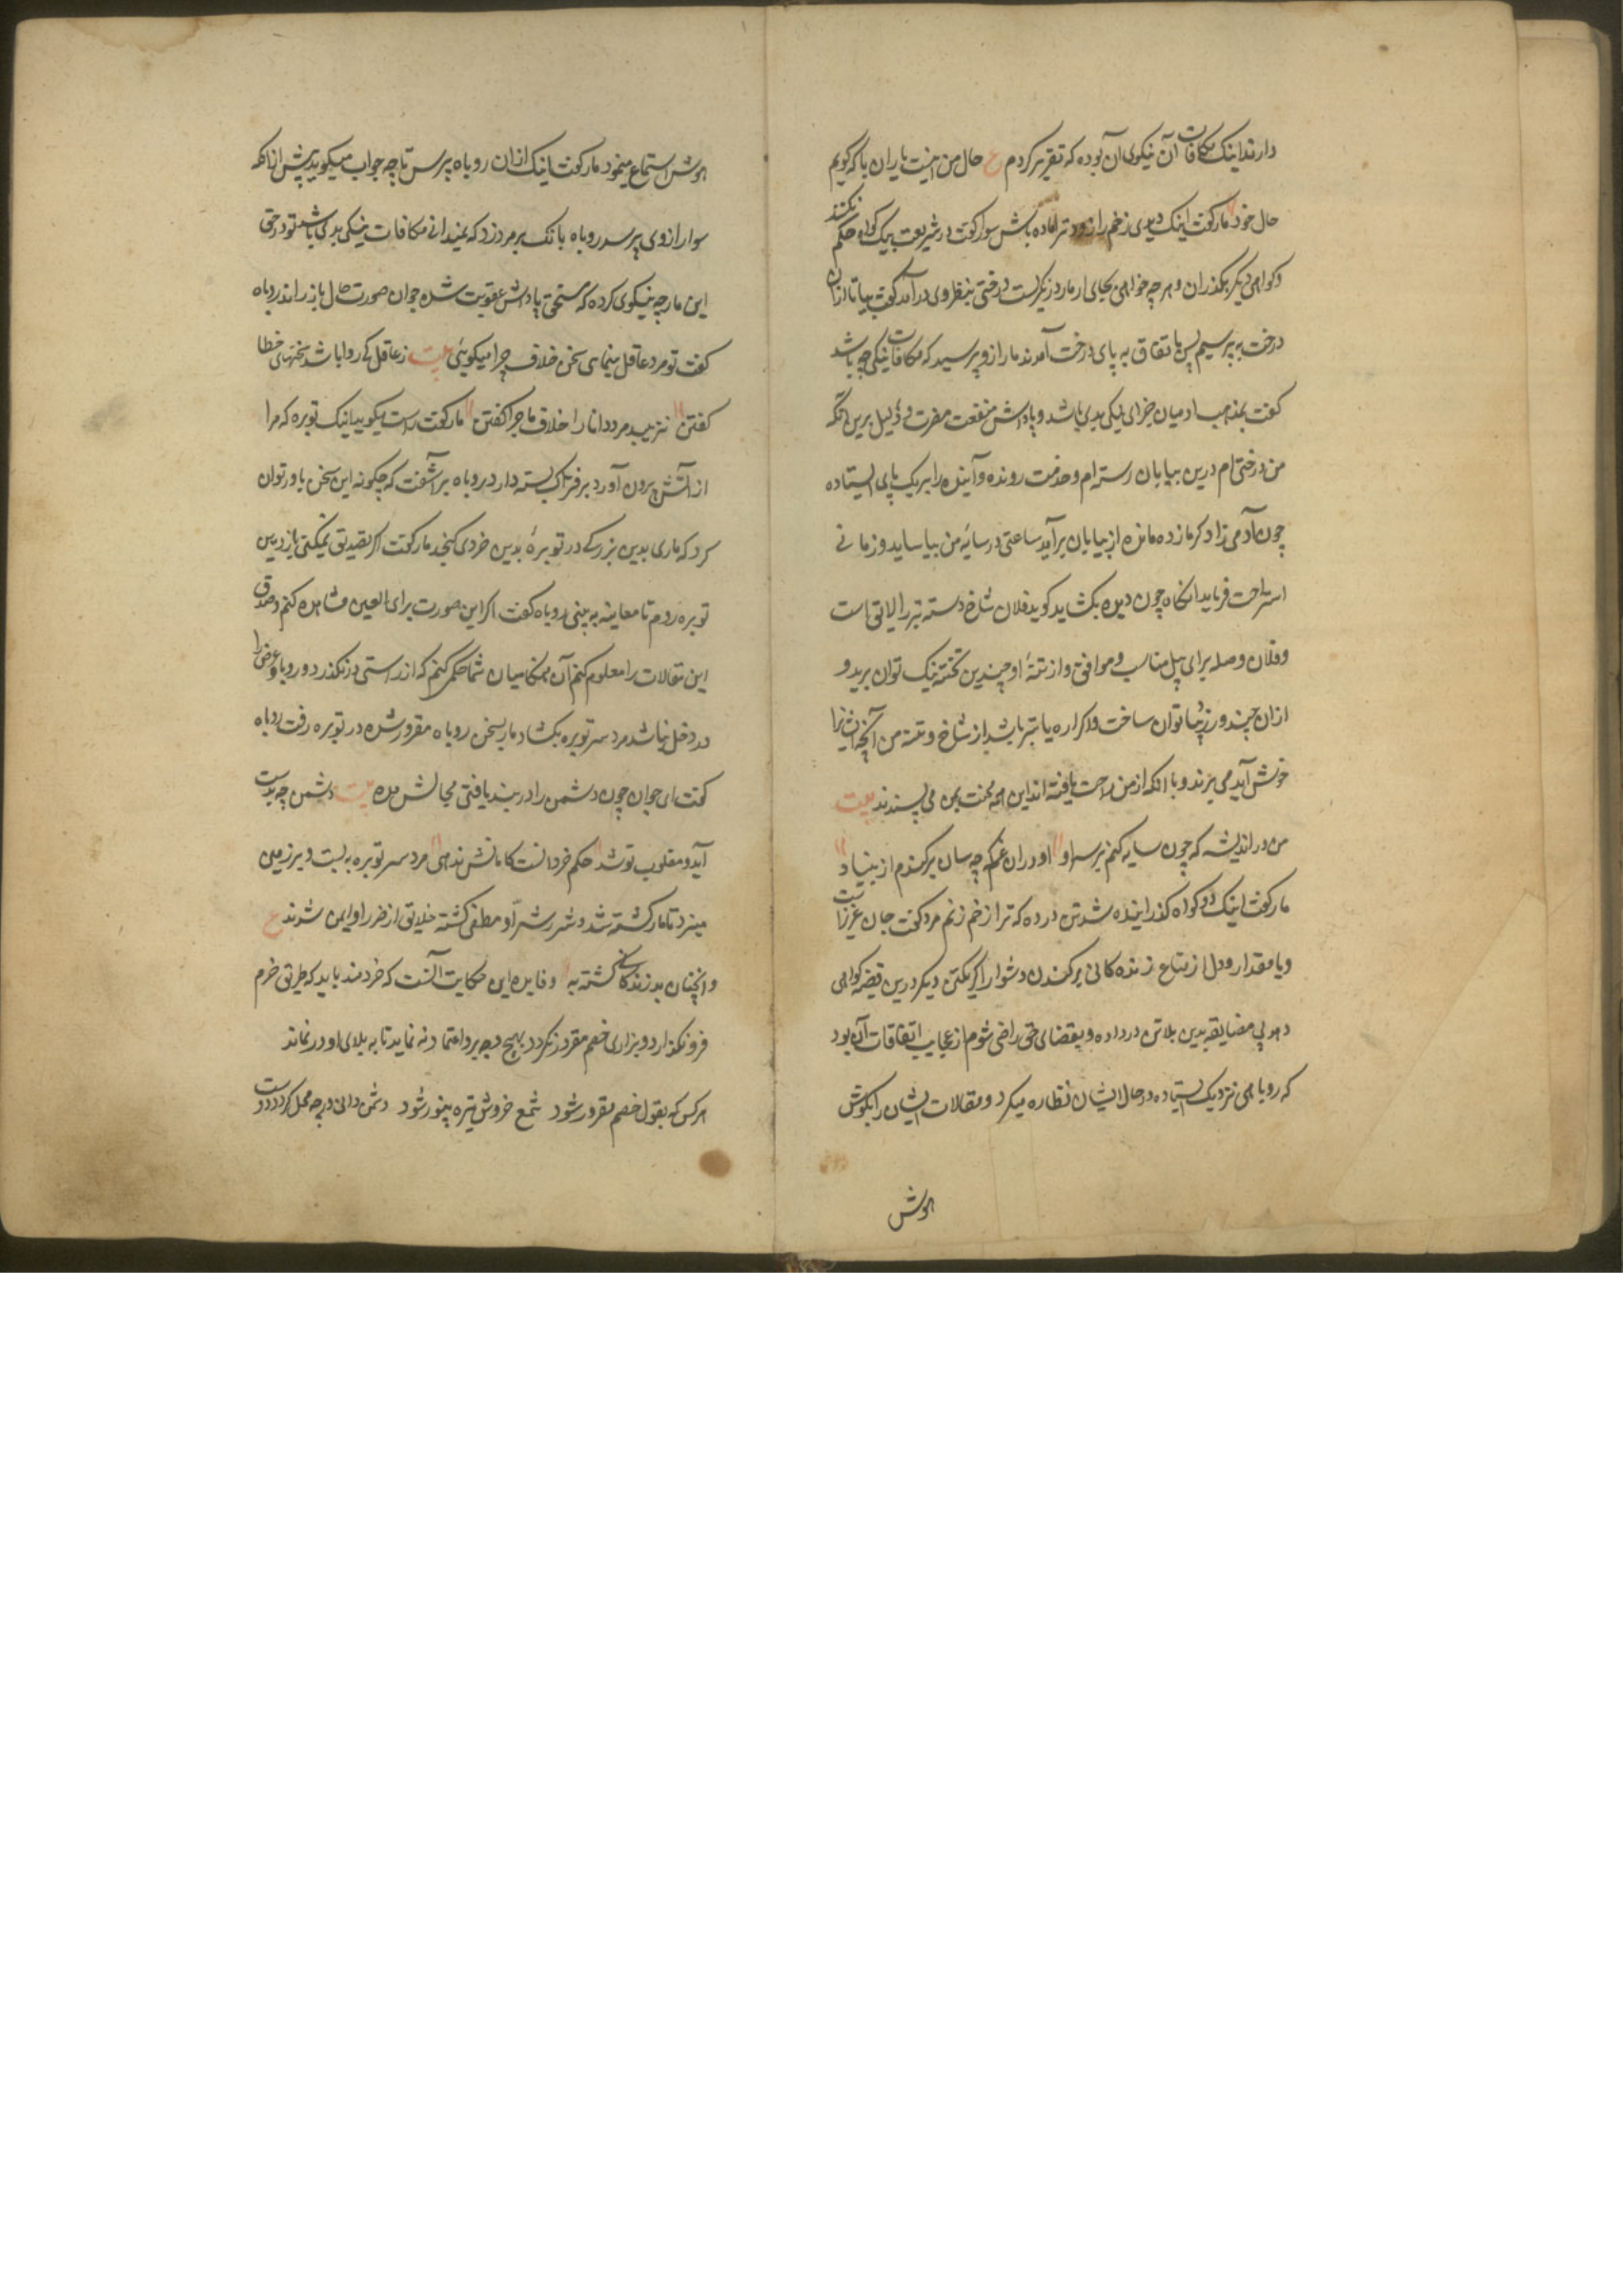 دارند اینک مکافات آن نیکوی آن بوده که تقریر کردم ع حال من اینست یاران با که گویم
حال خود مار گفت اینک دیدی زخم را زودتر اماده باش سوار گفت در شریعت بیک گواه حکم نکنند
گواهی دیگر بگذران و هر چه خواهی بجای ار مار در نگریست درختی بنظر وی درآمد گفت بیا تا ازان
درخت به پرسیم پس باتفاق به پای درخت آمدند مار ازو پرسید که مکافات نیکی چه باشد
گفت بمذهب ادمیان جزای نیکی بدی باشد و پاداش منفعت مضرت و دلیل برین انکه
من درختی ام درین بیابان رسته ام و خدمت رونده و آینده را بر یک پای ایستاده
چون آدمی زاد گرمازده مانده از بیابان برآید ساعتی در سایهٔ من بیاساید و زمانی
استراحت فرماید انگاه چون دیده بکشاید گوید فلان شاخ دسته تبر را لایق است
و فلان وصله برای بیل مناسب و موافق و از تنهٔ او چندین تخته نیک توان برید و
ازان چند در زیبا توان ساخت و اگر اره یا تبر باشد از شاخ و تنه من آنچه ایشانرا
خوش آید می برند و با انکه از من راحت یافته اند این همه محنت بمن می پسندند بیت
من در اندیشه که چون سایه کنم بر سر او او دران غم که چه سان برکندم از بنیاد
مار گفت اینک دو گواه گذرانیده شد تن در ده که ترا زخم زنم مرد گفت جان عزیز است
و یا مقدار و دل از متاع زنده کانی برکندن دشوار اگر یکتن دیگر درین قضیه گواهی
دهد بی مضایقه بدین بلا تن در داده و بقضای حق راضی شوم از عجایب اتفاقات آن بود
که روباهی نزدیک ایستاده در حال ایشان نظاره میکرد و مقالات ایشان را بگوش
هوش
هوش استماع مینمود مار گفت اینک ازان روباه پرس تا چه جواب میگوید پیش از انکه
سوار از وی پرسد روباه بانگ بر مرد زد که نمیدانی مکافات نیکی بدی باشد تو در حق
این مار چه نیکوی کرده که مستحق پاداش عقوبت شده جوان صورت حال باز راند روباه
گفت تو مرد عاقل مینمای سخن خلاف چرا میگوئی بیت ز عاقل کی روا باشد سخنهای خطا
گفتن نزیبد مرد دانا را خلاف ماجرا گفتن مار گفت راست میگوید اینک توبره که مرا
از آتش برون آورد بر فتراک بسته دارد روباه برآشفت که چگونه این سخن باور توان
کرد که ماری بدین بزرگی در توبرهٔ بدین خردی گنجد مار گفت اگر تصدیق نمیکنی باز درین
توبره روم تا معاینه به بینی روباه گفت اگر این صورت برای العین مشاهده کنم و صدق
این مقالات را معلوم کنم آن هنگام میان شما حکم کنم که از راستی درنگذرد و رویا و غرض را
در دخل نباشد مرد سر توبره بکشاد مار بسخن روباه مقرور شده در توبره رفت روباه
گفت ای جوان چون دشمن را در بند یافتی مجالش مده بیت دشمن چه بدست
آید و مغلوب تو شد حکم خرد انست که امانش ندهی مرد سر توبره به بست و بر زمین
میزد تا مار کشته شد و شرر شر او منطفی گشته خلایق از ضرر او ایمن شدند ع
و انچنان بد زندگانی کشته به و فایده این حکایت آنست که خردمند باید که طریق حزم
فرو نگذارد و بزاری خصم مقرور نگردد بهیچ وجه برو اعتماد نه نماید تا به بلای او در نماند
هر کس که بقول خصم مقرور شود شمع خردش تیره بینور شود دشمن دانی در چه محل گردد دوست